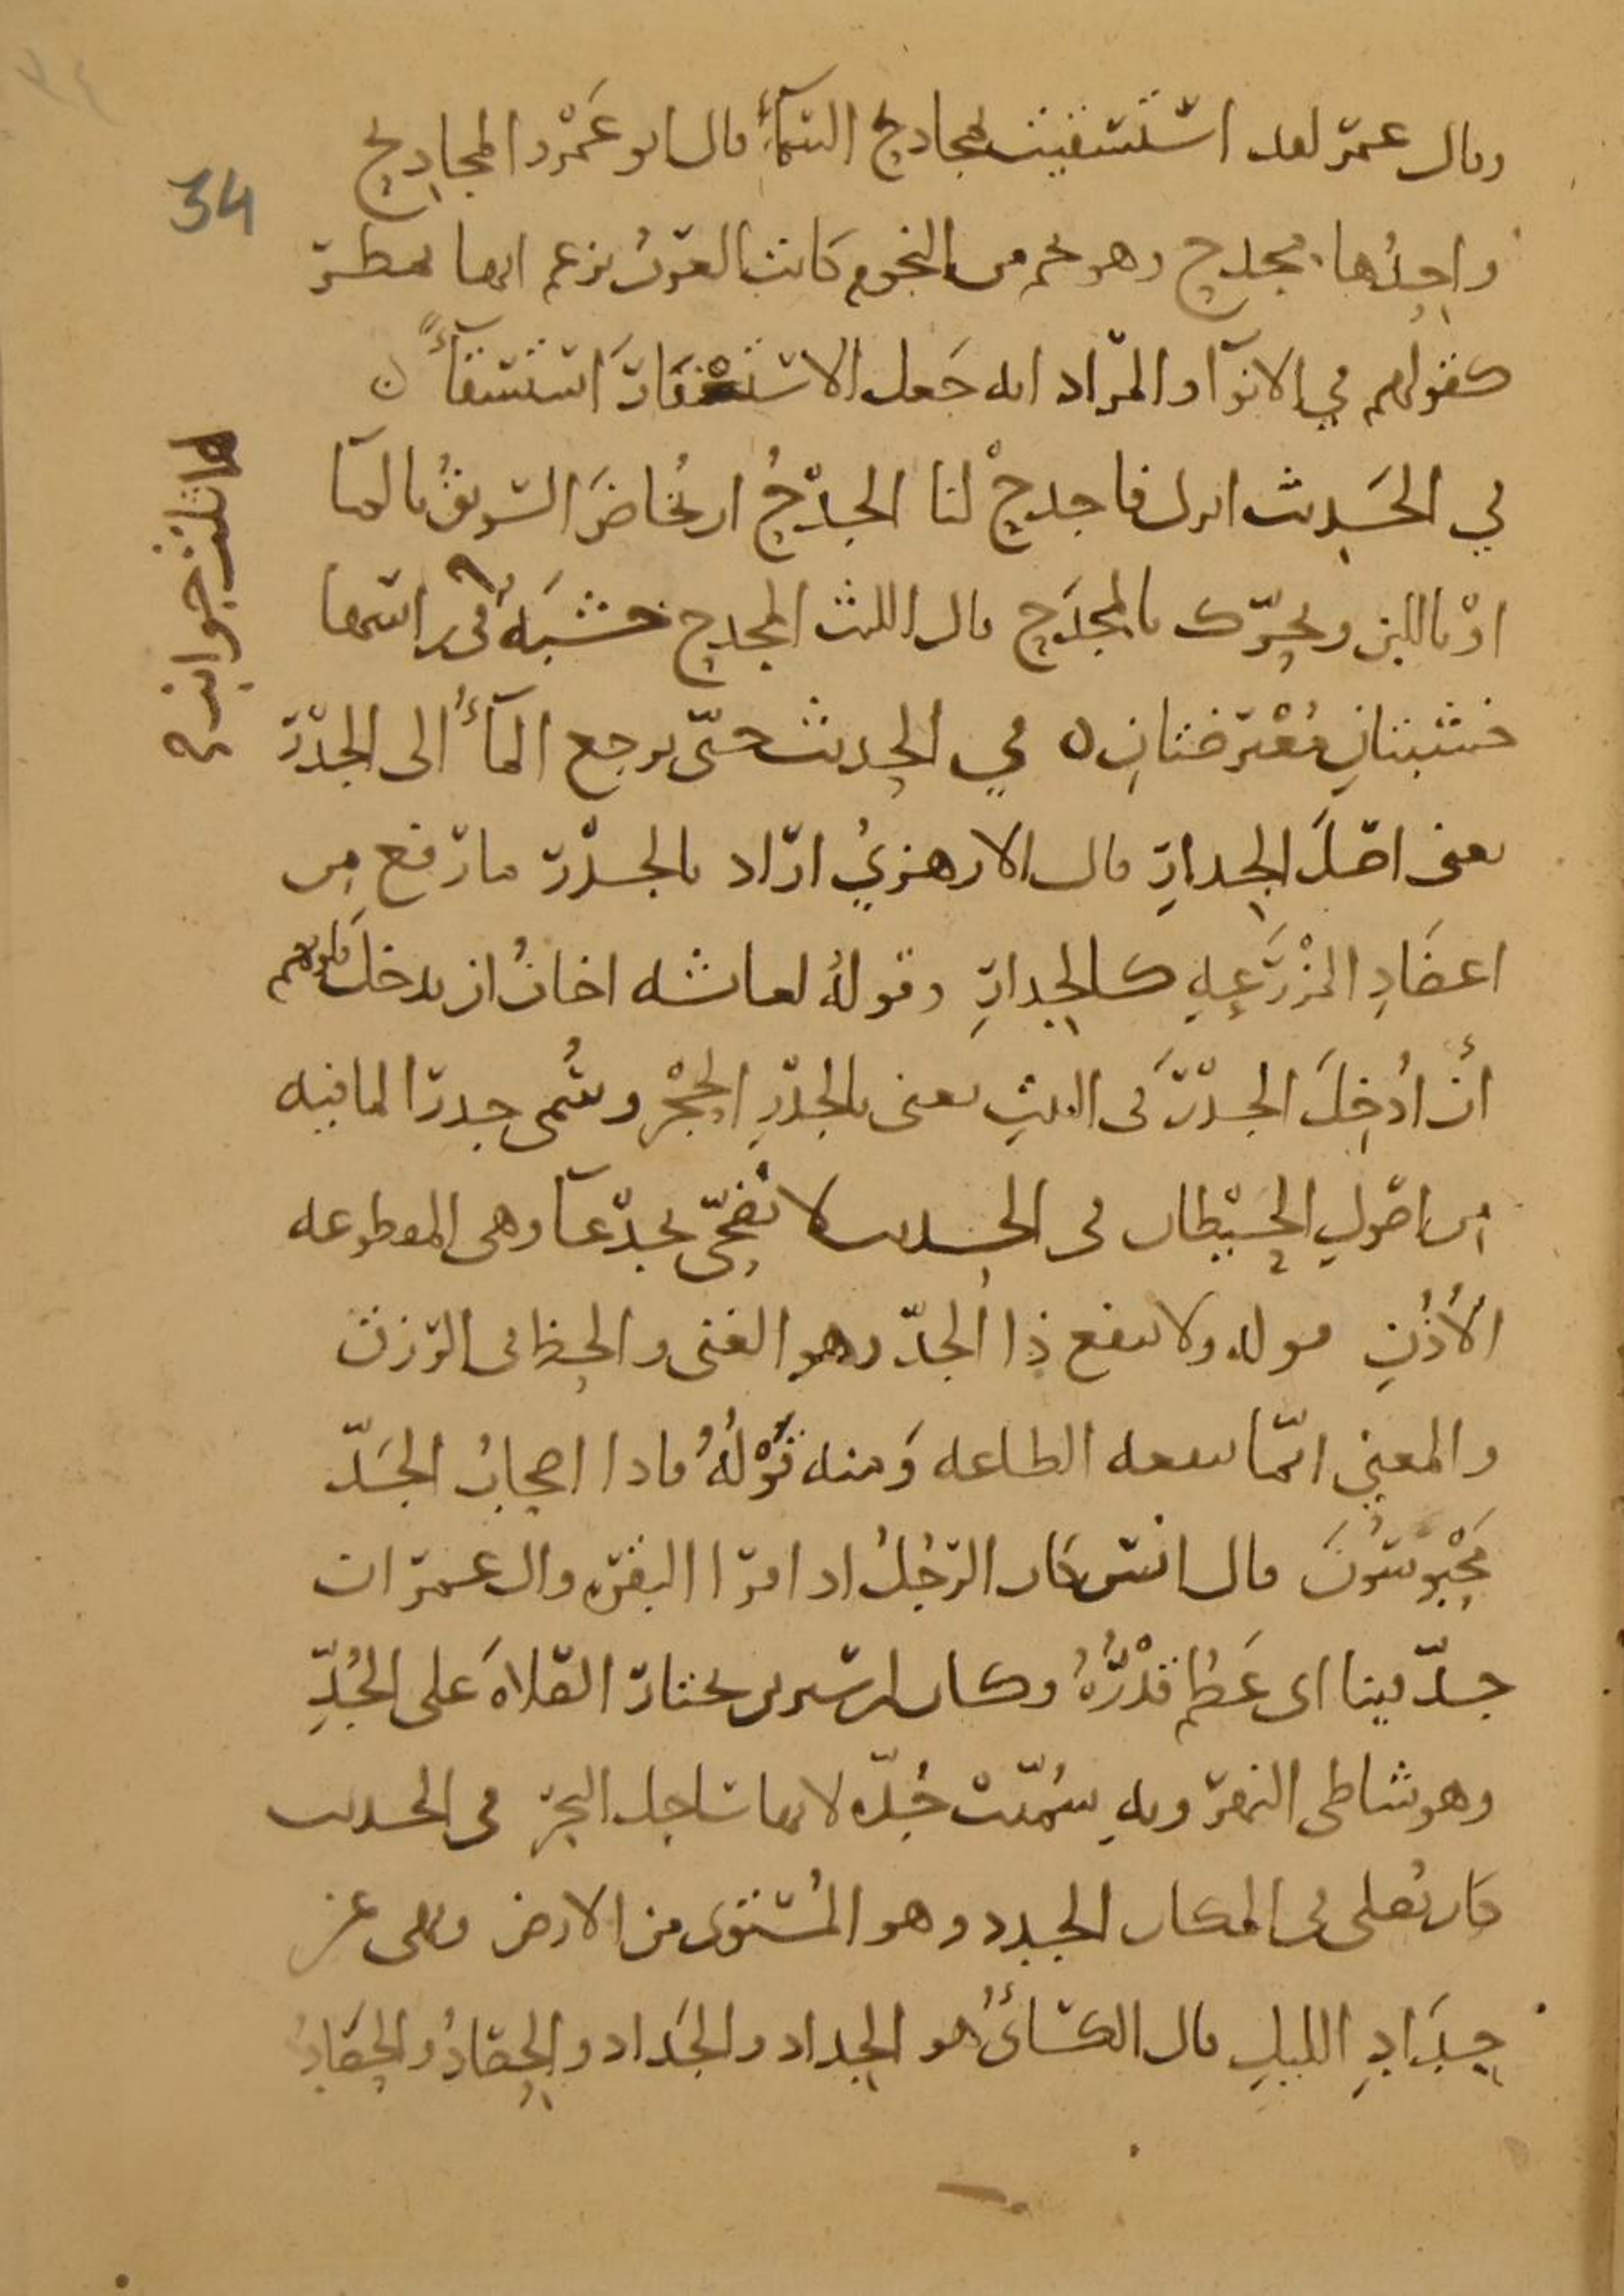 34
وقال عمر لقد استسقيت بمجاديح السمآء قال ابو عَمْرو المجاديح
واحِدُها مجدح وهو نجم من النجوم كَانت العَرَبُ تزعم انها تمطر
كقولهم في الانوآ والمراد انه جَعل الاستغفارَ استسقآءً ن
في الحَديث انزل فاجدحْ لنا الجدْحُ ان يُخاضَ السّويقُ بالمآ
اوْ باللبن ويحرّك بالمجدَح قال الليث المجدح خشبَة في راسها
خشبتانِ مُعْترضتانِ ه في الحديث حتّى يرجع المآءُ الى الجدْر
يعنى اصْلَ الجدارِ قال الازهريُ ارَاد بالجدْر ما رفع من
اعضَادِ المَزْرَعةِ كالجدارِ وقولهُ لعائشه اخافُ ان يدخلَ قلوبهم
أن أُدخِلَ الجدْرَ فى البيتِ يعنى بالجدْرِ الحِجْر وسُمى جدرا لما فيه
من اصولِ الحيْطان فى الحديث لا نُضَحّى بجدْعآ وهى المقطوعه
الأُذُنِ قوله ولا ينفع ذا الجدّ وهو الغنى والحظ فى الرّزق
والمعنى انّما ينفعه الطاعه وَمنه قَوْلُهُ فاذا اصحابُ الجَدّ
مَحْبوسُونَ قال انس كان الرّجُلُ اذا قرا البقره وال عمران
جدّ فينا اى عَظُم قَدْرُهُ وكان ابن سيرين يختار الصّلاةَ على الجُدِّ
وهو شاطى النهر وبهِ سُمّيَتْ جُدّه لانها ساحل البحْر فى الحديث
كان يُصلى فى المكان الجدد وهو المُستوى من الارض ونهى عن
جِدَادِ الليلِ قال الكسَائىُ هو الجِداد والجَداد والحِصَادُ والحَصَادُ
لها ثلاث جوانب صح